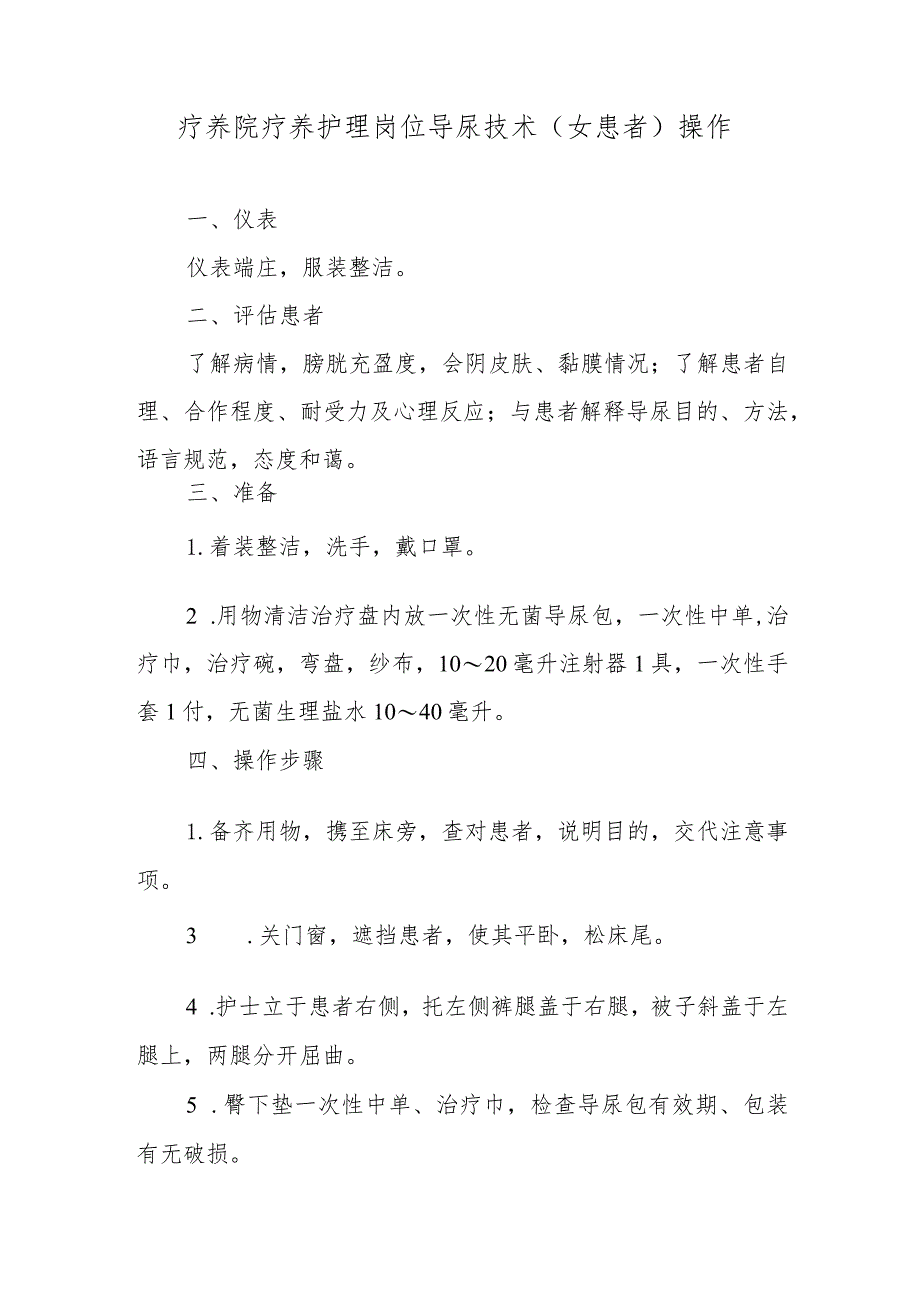 疗养院疗养护理岗位导尿技术（女患者）操作
一、仪表
仪表端庄，服装整洁。
二、评估患者
了解病情，膀胱充盈度，会阴皮肤、黏膜情况；了解患者自
理、合作程度、耐受力及心理反应；与患者解释导尿目的、方法，
语言规范，态度和蔼。
三、准备
1. 着装整洁，洗手，戴口罩。
2 .用物清洁治疗盘内放一次性无菌导尿包，一次性中单,治
疗巾，治疗碗，弯盘，纱布，10～20 毫升注射器 1 具，一次性手
套 1 付，无菌生理盐水 10～40 毫升。
四、操作步骤
1. 备齐用物，携至床旁，查对患者，说明目的，交代注意事
项。
3 .关门窗，遮挡患者，使其平卧，松床尾。
4 .护士立于患者右侧，托左侧裤腿盖于右腿，被子斜盖于左
腿上，两腿分开屈曲。
5 .臀下垫一次性中单、治疗巾，检查导尿包有效期、包装
有无破损。